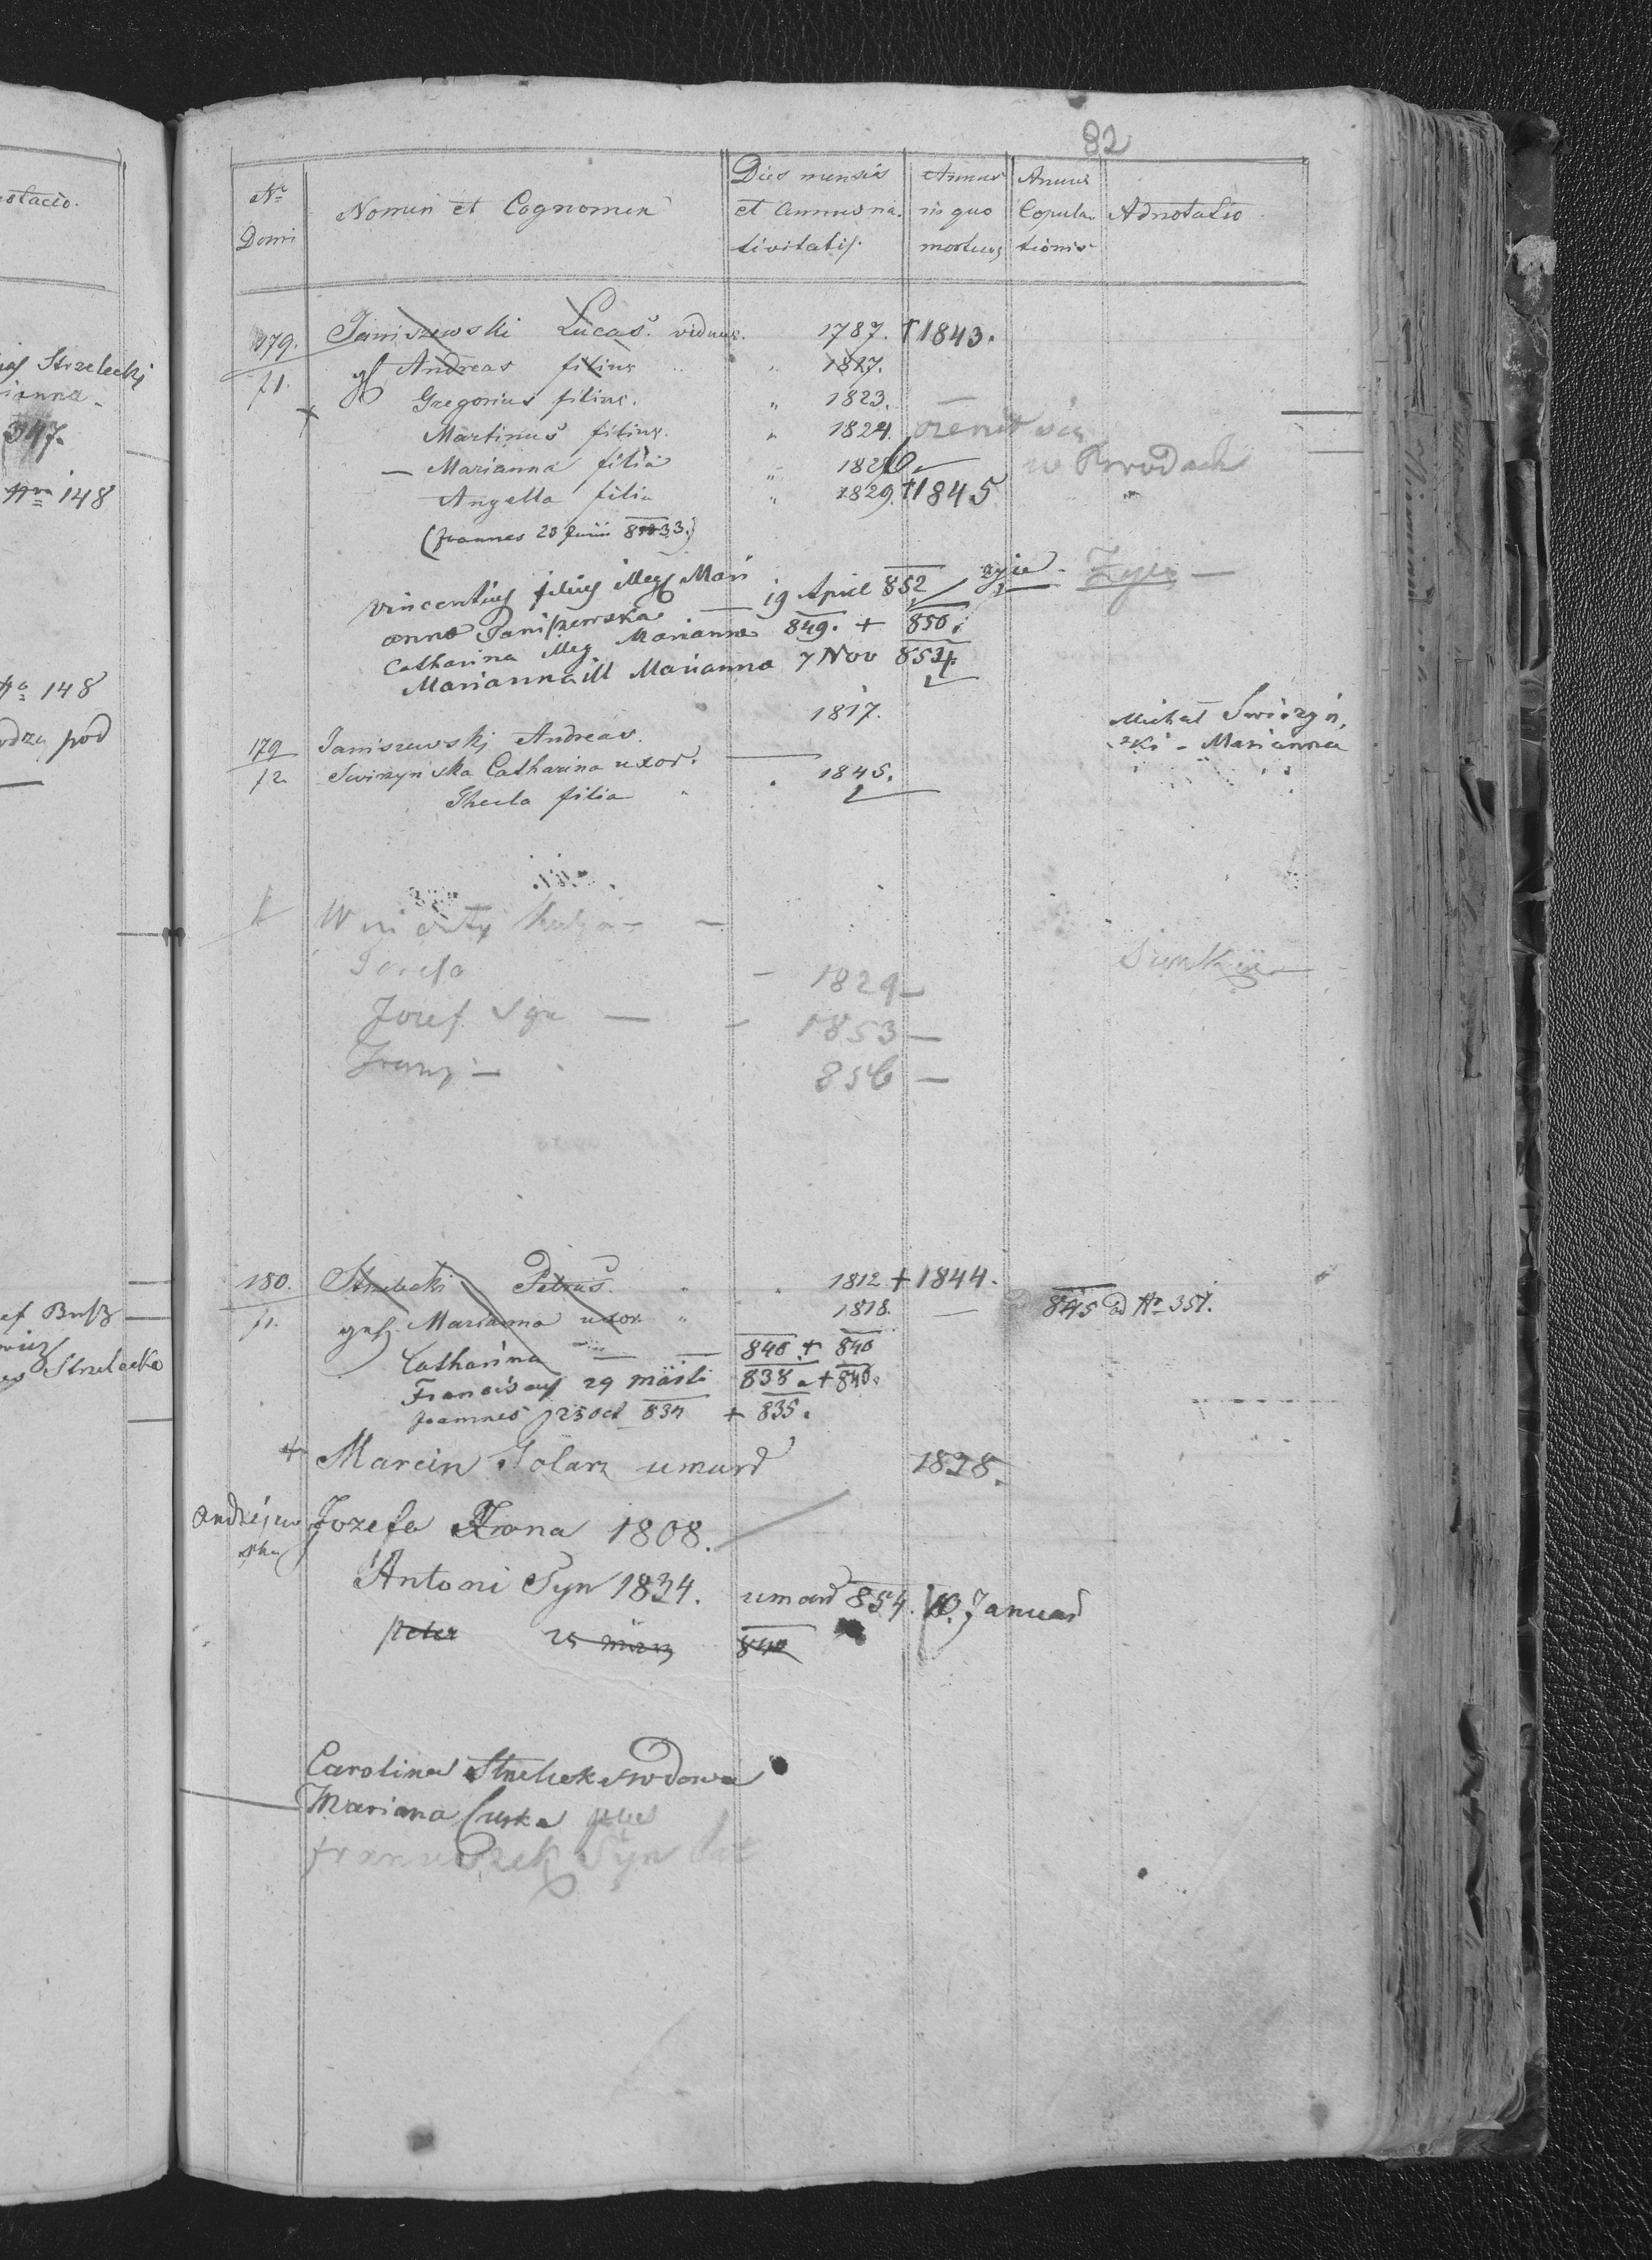 82
Nr Domi
Nomen et Cognomen
Dies mensis et Annus nativitatis
Annus in quo mortuus
Annus Copulationis
Adnotatio
179. Janiszewski Lucas viduus. 1787. †1843.
f1. Andreas filius " 1817.
x Gregorius filius. " 1823.
Martinus filius. " 1824. ożenił się
— Marianna filia " 1826 — w Brodach
Angella filia " 1829. †1845
(Joannes 20 Junii 833.)
Vincentius filius illeg Mari 19 April 852 żyje — Żyje —
anna Janiszewska
Catharina illeg Marianna 849. + 850.
Marianna ill Marianna 7 Nov 854
1817.
179 Janiszewskj Andreas.
f2 Swirzynska Catharina uxor.
Michał Swirzyń,
ski - Marianna
Thecla filia " 1845.
Józefa — 1829 —
Jozef Syn — — 1853 —
Franz — 856 —
180. Strzelecki Petrus. " " 1812 + 1844.
f1. Marianna uxor " " 1818. — 845 ad Nr 357.
Catharina — — 840 + 840
Franciscus 29 Marti 838. + 840.
Joannes 25 Oct 834 + 835.
+ Marcin Tolarz umarł 1838.
Andrzejew
ska
Jozefa Żona 1808.
Antoni Syn 1834. umarł 854. 10. Januar
Peter 25 März 840
Carolina Strzelecka wdowa
Mariana Curka
franciszek Syn
otacio.
Strzeleckj
ianna
347.
Nro 148
No 148
pod
ef
Strzelecka